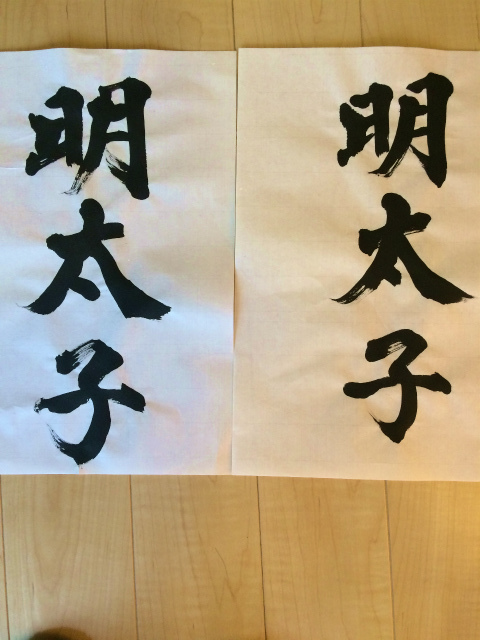 明太子
明太子